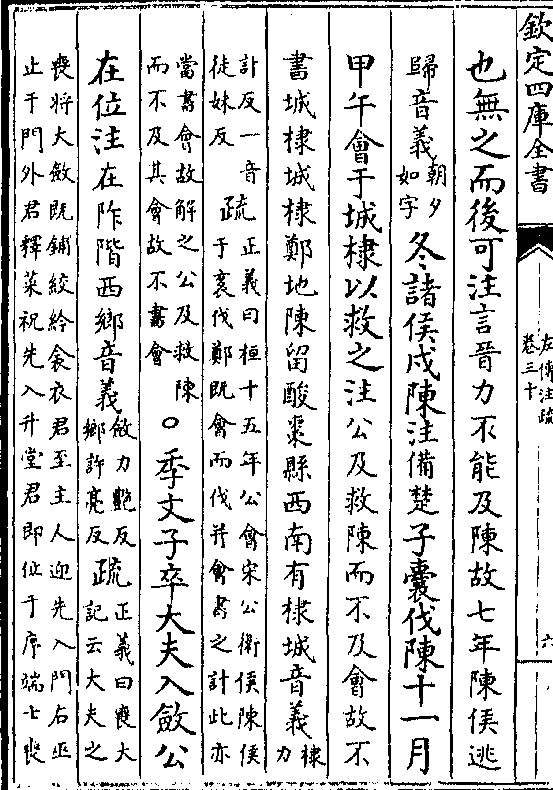 欽定四庫全書
左傳注疏
卷三十
六
也無之而後可注言晉力不能及陳故七年陳侯逃
歸音義朝夕如字冬諸侯戍陳注備楚子囊伐陳十一月
甲午會于城棣以救之注公及救陳而不及會故不
書城棣城棣鄭地陳留酸棗縣西南有棣城音義棣力
計反一音徒妹反疏正義曰桓十五年公會宋公衛侯陳侯于袲伐鄭既會而伐并會書之計此亦
當書會故解之公及救陳而不及其會故不書會○季文子卒大夫入斂公
在位注在阼階西鄉音義斂力豔反鄉許亮反疏正義曰喪大記云大夫之
喪將大斂既鋪絞紟衾衣君至主人迎先入門右巫
止于門外君釋菜祝先入升堂君即位于序端士喪